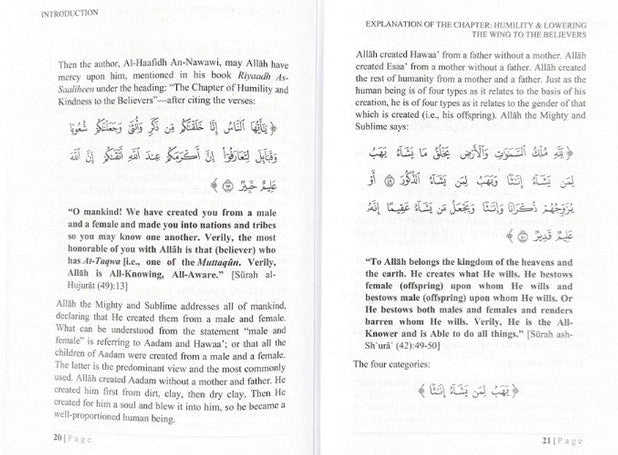 INTRODUCTION
Then the author, Al-Haafidh An-Nawawi, may Allāh have
mercy upon him, mentioned in his book Riyaadh As-
Saaliheen under the heading: "The Chapter of Humility and
Kindness to the Believers"—after citing the verses:
﴿ يَٰٓأَيُّهَا ٱلنَّاسُ إِنَّا خَلَقْنَٰكُم مِّن ذَكَرٍ وَأُنثَىٰ وَجَعَلْنَٰكُمْ شُعُوبًا
وَقَبَآئِلَ لِتَعَارَفُوٓا۟ إِنَّ أَكْرَمَكُمْ عِندَ ٱللَّهِ أَتْقَىٰكُمْ إِنَّ ٱللَّهَ
عَلِيمٌ خَبِيرٌ ١٣ ﴾
"O mankind! We have created you from a male
and a female and made you into nations and tribes
so you may know one another. Verily, the most
honorable of you with Allāh is that (believer) who
has At-Taqwa [i.e., one of the Muttaqūn. Verily,
Allāh is All-Knowing, All-Aware." [Sūrah al-
Hujurāt (49):13]
Allāh the Mighty and Sublime addresses all of mankind,
declaring that He created them from a male and female.
What can be understood from the statement "male and
female" is referring to Aadam and Hawaa'; or that all the
children of Aadam were created from a male and a female.
The latter is the predominant view and the most commonly
used. Allāh created Aadam without a mother and father. He
created him first from dirt, clay, then dry clay. Then He
created for him a soul and blew it into him, so he became a
well-proportioned human being.
20 | Page
EXPLANATION OF THE CHAPTER: HUMILITY & LOWERING
THE WING TO THE BELIEVERS
Allāh created Hawaa' from a father without a mother. Allāh
created Eesaa' from a mother without a father. Allāh created
the rest of humanity from a mother and a father. Just as the
human being is of four types as it relates to the basis of his
creation, he is of four types as it relates to the gender of that
which is created (i.e., his offspring). Allāh the Mighty and
Sublime says:
﴿ لِّلَّهِ مُلْكُ ٱلسَّمَٰوَٰتِ وَٱلْأَرْضِ يَخْلُقُ مَا يَشَآءُ يَهَبُ
لِمَن يَشَآءُ إِنَٰثًا وَيَهَبُ لِمَن يَشَآءُ ٱلذُّكُورَ ٤٩ أَوْ
يُزَوِّجُهُمْ ذُكْرَانًا وَإِنَٰثًا وَيَجْعَلُ مَن يَشَآءُ عَقِيمًا إِنَّهُۥ
عَلِيمٌ قَدِيرٌ ٥٠ ﴾
"To Allāh belongs the kingdom of the heavens and
the earth. He creates what He wills. He bestows
female (offspring) upon whom He wills and
bestows male (offspring) upon whom He wills. Or
He bestows both males and females and renders
barren whom He wills. Verily, He is the All-
Knower and is Able to do all things." [Sūrah ash-
Sh'urā' (42):49-50]
The four categories:
﴿ يَهَبُ لِمَن يَشَآءُ إِنَٰثًا ﴾
21 | Page